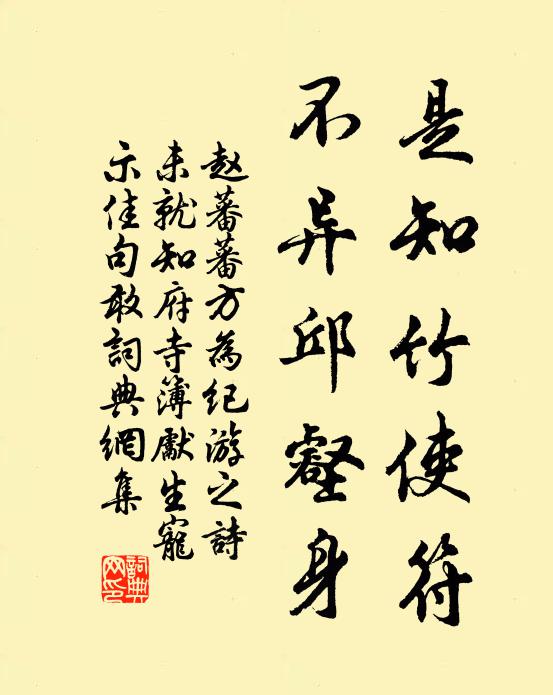 是知竹使符
不异邱壑身
赵蕃蕃方為纪游之詩
未就知府寺簿獻生寵
示佳句敢詞典網集
詞典网印